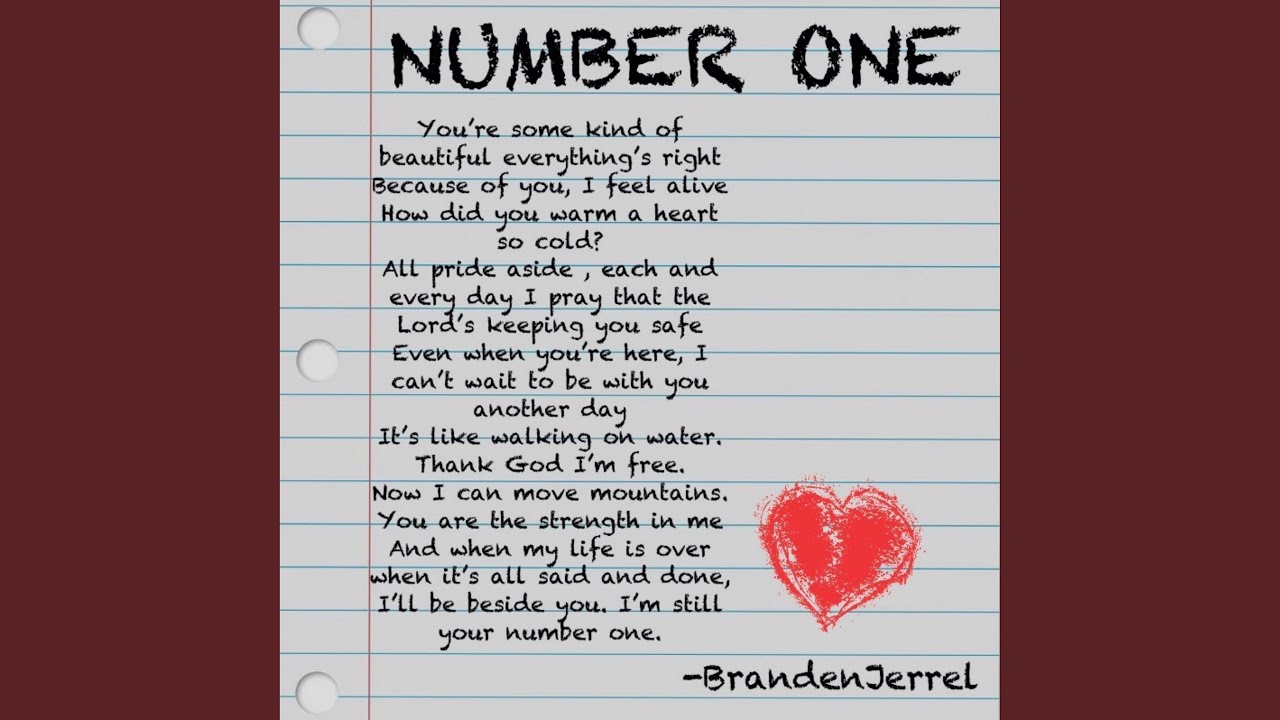 NUMBER ONE
You're some kind of
beautiful everything's right
Because of you, I feel alive
How did you warm a heart
so cold?
All pride aside , each and
every day I pray that the
Lord's keeping you safe
Even when you're here, I
can't wait to be with you
another day
It's like walking on water.
Thank God I'm free.
Now I can move mountains.
You are the strength in me
And when my life is over
when it's all said and done,
I'll be beside you. I'm still
your number one.
-BrandenJerrel